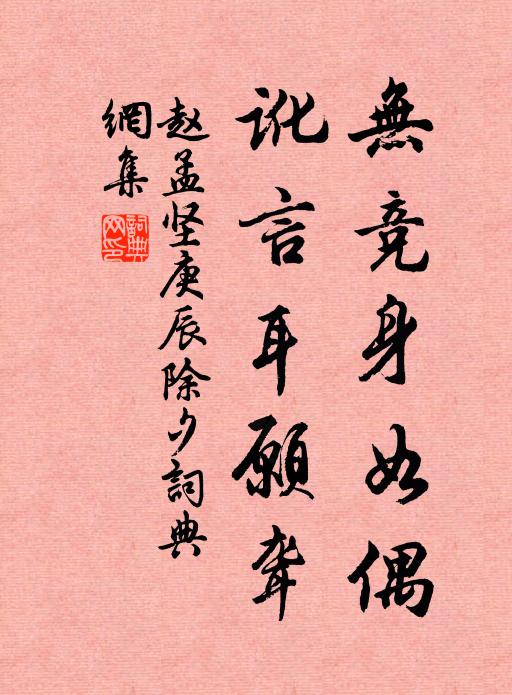 無竞身如偶
讹言耳願聋
赵孟坚庚辰除夕詞典
網集
詞典
网印